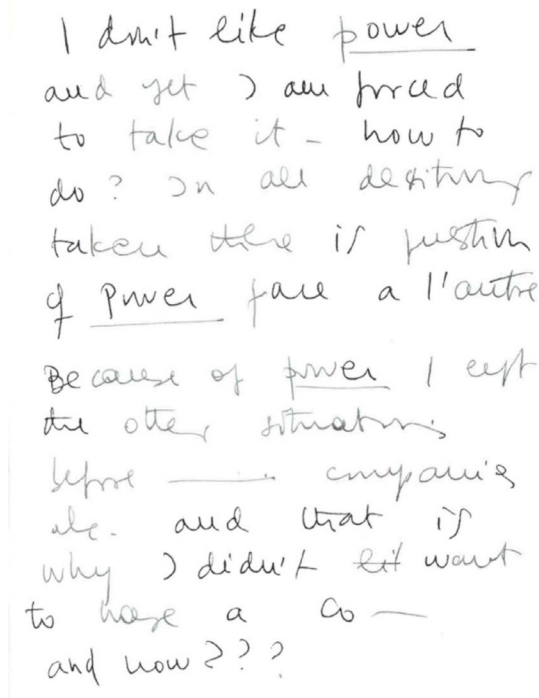 I don't like power
and yet I am forced
to take it - how to
do? In all
taken there is question
of Power face a l'autre
Because of power I left
the other situations
before —— companies
etc. and that is
why I didn't want
to have a Co —
and now???